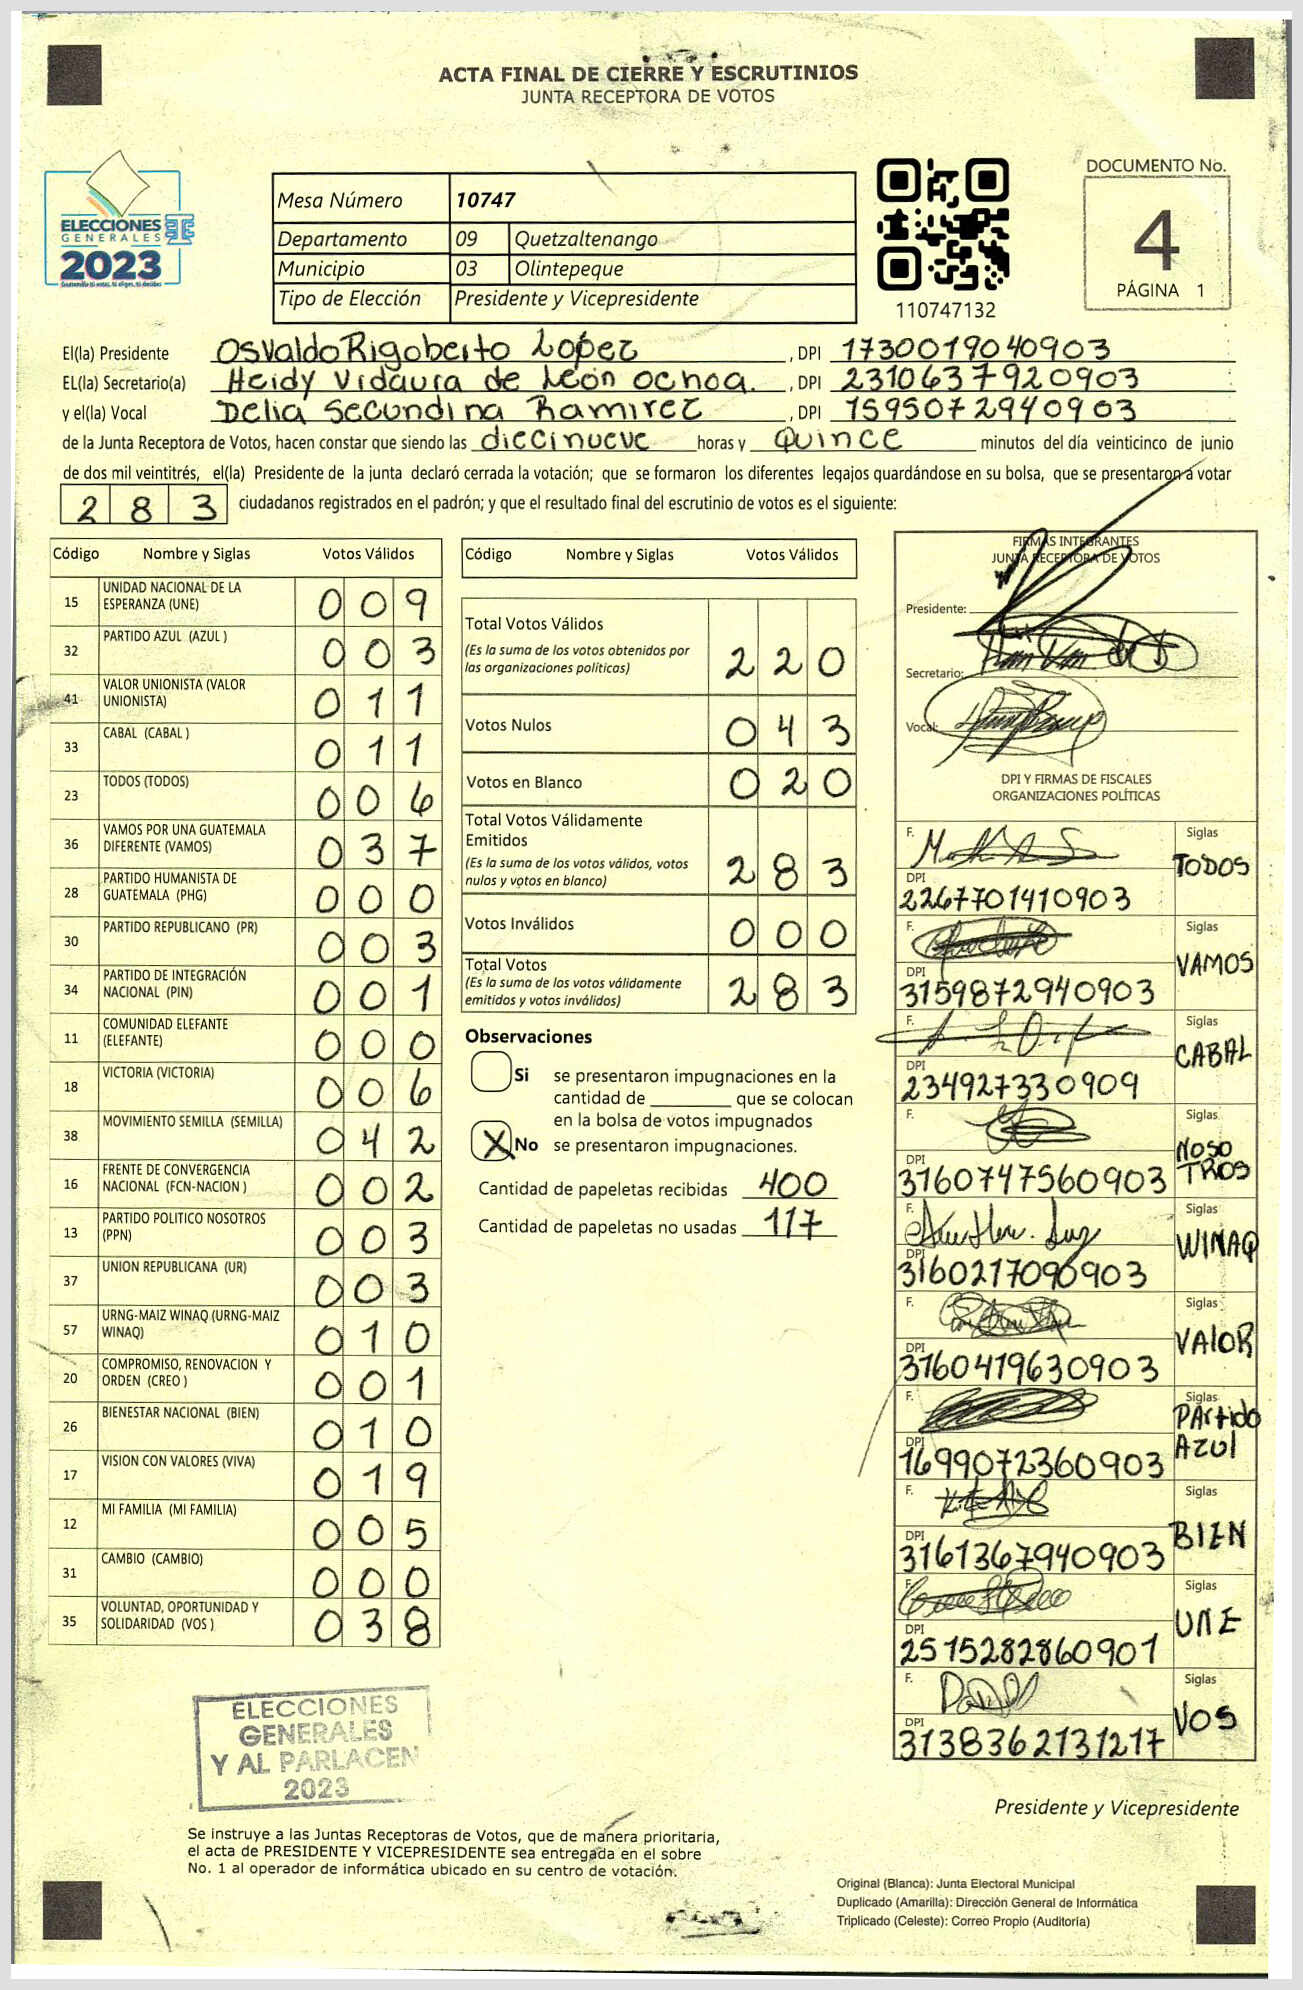 ACTA FINAL DE CIERRE Y ESCRUTINIOS
JUNTA RECEPTORA DE VOTOS
ELECCIONES
GENERALES
2023
Mesa Número 10747
Departamento 09 Quetzaltenango
Municipio 03 Olintepeque
Tipo de Elección Presidente y Vicepresidente
110747132
DOCUMENTO No.
4
PÁGINA 1
El(la) Presidente Osvaldo Rigoberto Lopez , DPI 1730019040903
EL(la) Secretario(a) Heidy Vidaura de León Ochoa. , DPI 2310637920903
y el(la) Vocal Delia Secundina Ramirez , DPI 1595072940903
de la Junta Receptora de Votos, hacen constar que siendo las diecinueve horas y Quince minutos del día veinticinco de junio
de dos mil veintitrés, el(la) Presidente de la junta declaró cerrada la votación; que se formaron los diferentes legajos guardándose en su bolsa, que se presentaron a votar
283 ciudadanos registrados en el padrón; y que el resultado final del escrutinio de votos es el siguiente:
Código Nombre y Siglas Votos Válidos
15 UNIDAD NACIONAL DE LA ESPERANZA (UNE) 009
32 PARTIDO AZUL (AZUL ) 003
41 VALOR UNIONISTA (VALOR UNIONISTA) 011
33 CABAL (CABAL ) 011
23 TODOS (TODOS) 006
36 VAMOS POR UNA GUATEMALA DIFERENTE (VAMOS) 037
28 PARTIDO HUMANISTA DE GUATEMALA (PHG) 000
30 PARTIDO REPUBLICANO (PR) 003
34 PARTIDO DE INTEGRACIÓN NACIONAL (PIN) 001
11 COMUNIDAD ELEFANTE (ELEFANTE) 000
18 VICTORIA (VICTORIA) 006
38 MOVIMIENTO SEMILLA (SEMILLA) 042
16 FRENTE DE CONVERGENCIA NACIONAL (FCN-NACION ) 002
13 PARTIDO POLITICO NOSOTROS (PPN) 003
37 UNION REPUBLICANA (UR) 003
57 URNG-MAIZ WINAQ (URNG-MAIZ WINAQ) 010
20 COMPROMISO, RENOVACION Y ORDEN (CREO ) 001
26 BIENESTAR NACIONAL (BIEN) 010
17 VISION CON VALORES (VIVA) 019
12 MI FAMILIA (MI FAMILIA) 005
31 CAMBIO (CAMBIO) 000
35 VOLUNTAD, OPORTUNIDAD Y SOLIDARIDAD (VOS ) 038
Código Nombre y Siglas Votos Válidos
Total Votos Válidos 220
(Es la suma de los votos obtenidos por
las organizaciones políticas)
Votos Nulos 043
Votos en Blanco 020
Total Votos Válidamente
Emitidos 283
(Es la suma de los votos válidos, votos
nulos y votos en blanco)
Votos Inválidos 000
Total Votos 283
(Es la suma de los votos válidamente
emitidos y votos inválidos)
Observaciones
Si se presentaron impugnaciones en la
cantidad de ________ que se colocan
en la bolsa de votos impugnados
X No se presentaron impugnaciones.
Cantidad de papeletas recibidas 400
Cantidad de papeletas no usadas 117
FIRMAS INTEGRANTES
JUNTA RECEPTORA DE VOTOS
Presidente:
Secretario:
Vocal:
DPI Y FIRMAS DE FISCALES
ORGANIZACIONES POLÍTICAS
F. Siglas TODOS
DPI 2267701410903
F. Siglas VAMOS
DPI 3159872940903
F. Siglas CABAL
DPI 234927330909
F. Siglas NOSOTROS
DPI 3160747560903
F. Siglas WINAQ
DPI 3160217090903
F. Siglas VALOR
DPI 3160419630903
F. Siglas PArtido AZUl
DPI 1699072360903
F. Siglas BIEN
DPI 3161367940903
F. Siglas UNE
DPI 2515282860901
F. Siglas VOS
DPI 3138362131217
ELECCIONES
GENERALES
Y AL PARLACEN
2023
Presidente y Vicepresidente
Se instruye a las Juntas Receptoras de Votos, que de manera prioritaria,
el acta de PRESIDENTE Y VICEPRESIDENTE sea entregada en el sobre
No. 1 al operador de informática ubicado en su centro de votación.
Original (Blanca): Junta Electoral Municipal
Duplicado (Amarilla): Dirección General de Informática
Triplicado (Celeste): Correo Propio (Auditoría)